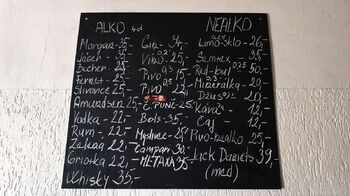 ALKO 4cl
Morgan 35,-
Jäger 35,-
Becher 25,-
Fernet 25,-
Slivovice 25,-
Amundsen 25,-
Vodka - 22,-
Rum - 22,-
Zelená 22,-
Griotka 22,-
Whisky 35,-
Gin
Víno 0,2 25,-
Pivo 0,5
Pivo 0,3 22,-
Č. PUNČ - 25,-
Bols 35,-
Myslivec - 25,-
Campari 30,-
METAXA 35,-
NEALKO
Limo-sklo - 26,-
Semtex 35,-
Red-bull 50,-
Minerálka - 20,-
Džus 0,2
Káva
Čaj - 12,-
Pivo-nealko 25,-
Jack Daniels 39,-
(med)